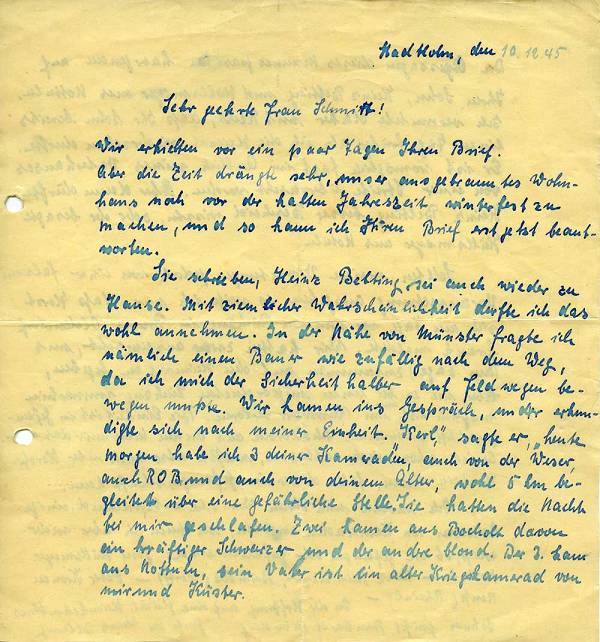 Stadtlohn, den 10.12.45
Sehr geehrte Frau Schmitt!
Wir erhielten vor ein paar Tagen Ihren Brief.
Aber die Zeit drängte sehr, unser ausgebranntes Wohn-
haus noch vor der kalten Jahreszeit winterfest zu
machen, und so kann ich Ihren Brief erst jetzt beant-
worten.
Sie schrieben, Heinz Belting sei auch wieder zu
Hause. Mit ziemlicher Wahrscheinlichkeit durfte ich das
wohl annehmen. In der Nähe von Münster fragte ich
nämlich einen Bauer wie zufällig nach dem Weg,
da ich mich der Sicherheit halber auf Feldwegen be-
wegen mußte. Wir kamen ins Gespräch, und er erkun-
digte sich nach meiner Einheit. „Kerl," sagte er, „heute
morgen habe ich 3 deiner Kameraden, auch von der Weser,
auch ROB und auch von deinem Alter, wohl 5 km be-
gleitet über eine gefährliche Stelle. Sie hatten die Nacht
bei mir geschlafen. Zwei kamen aus Bocholt davon
ein kräftiger Schwarzer und der andre blond. Der 3. kam
aus Nottuln, sein Vater ist ein alter Kriegskamerad von
mir und Küster.